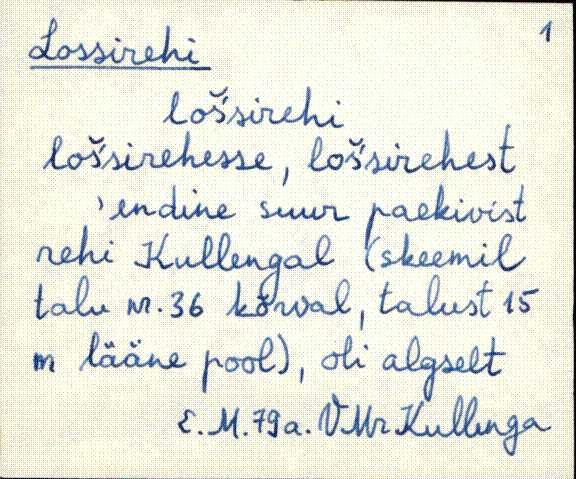 1
Lossirehi
lošsirehi
lošsirehesse, lošsirehest
'endine suur paekivist
rehi Kullengal (skeemil
talu nr. 36 kõrval, talust 15
m lääne pool), oli algselt
E.M.79a. VMr Kullenga